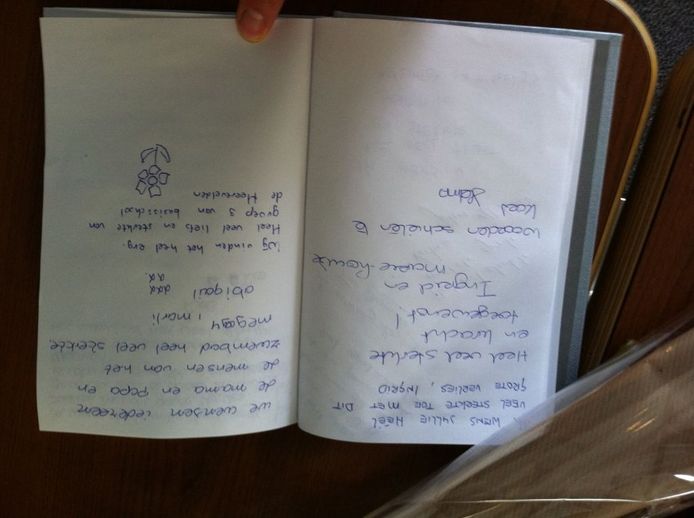 WENS JULLIE HEEL
VEEL STERKTE TOE MET DIT
GROTE VERLIES, INGRID
Heel veel sterkte
en kracht
toegewenst!
Ingrid en
woorden schieten
kort
we wensen iedereen
de mama en Papa en
de mensen van het
zwembad heel veel sterkte
abigail
Wij vinden het heel erg.
Heel veel liefs en sterkte van
groep 3 van basisschool
de Heerevelden